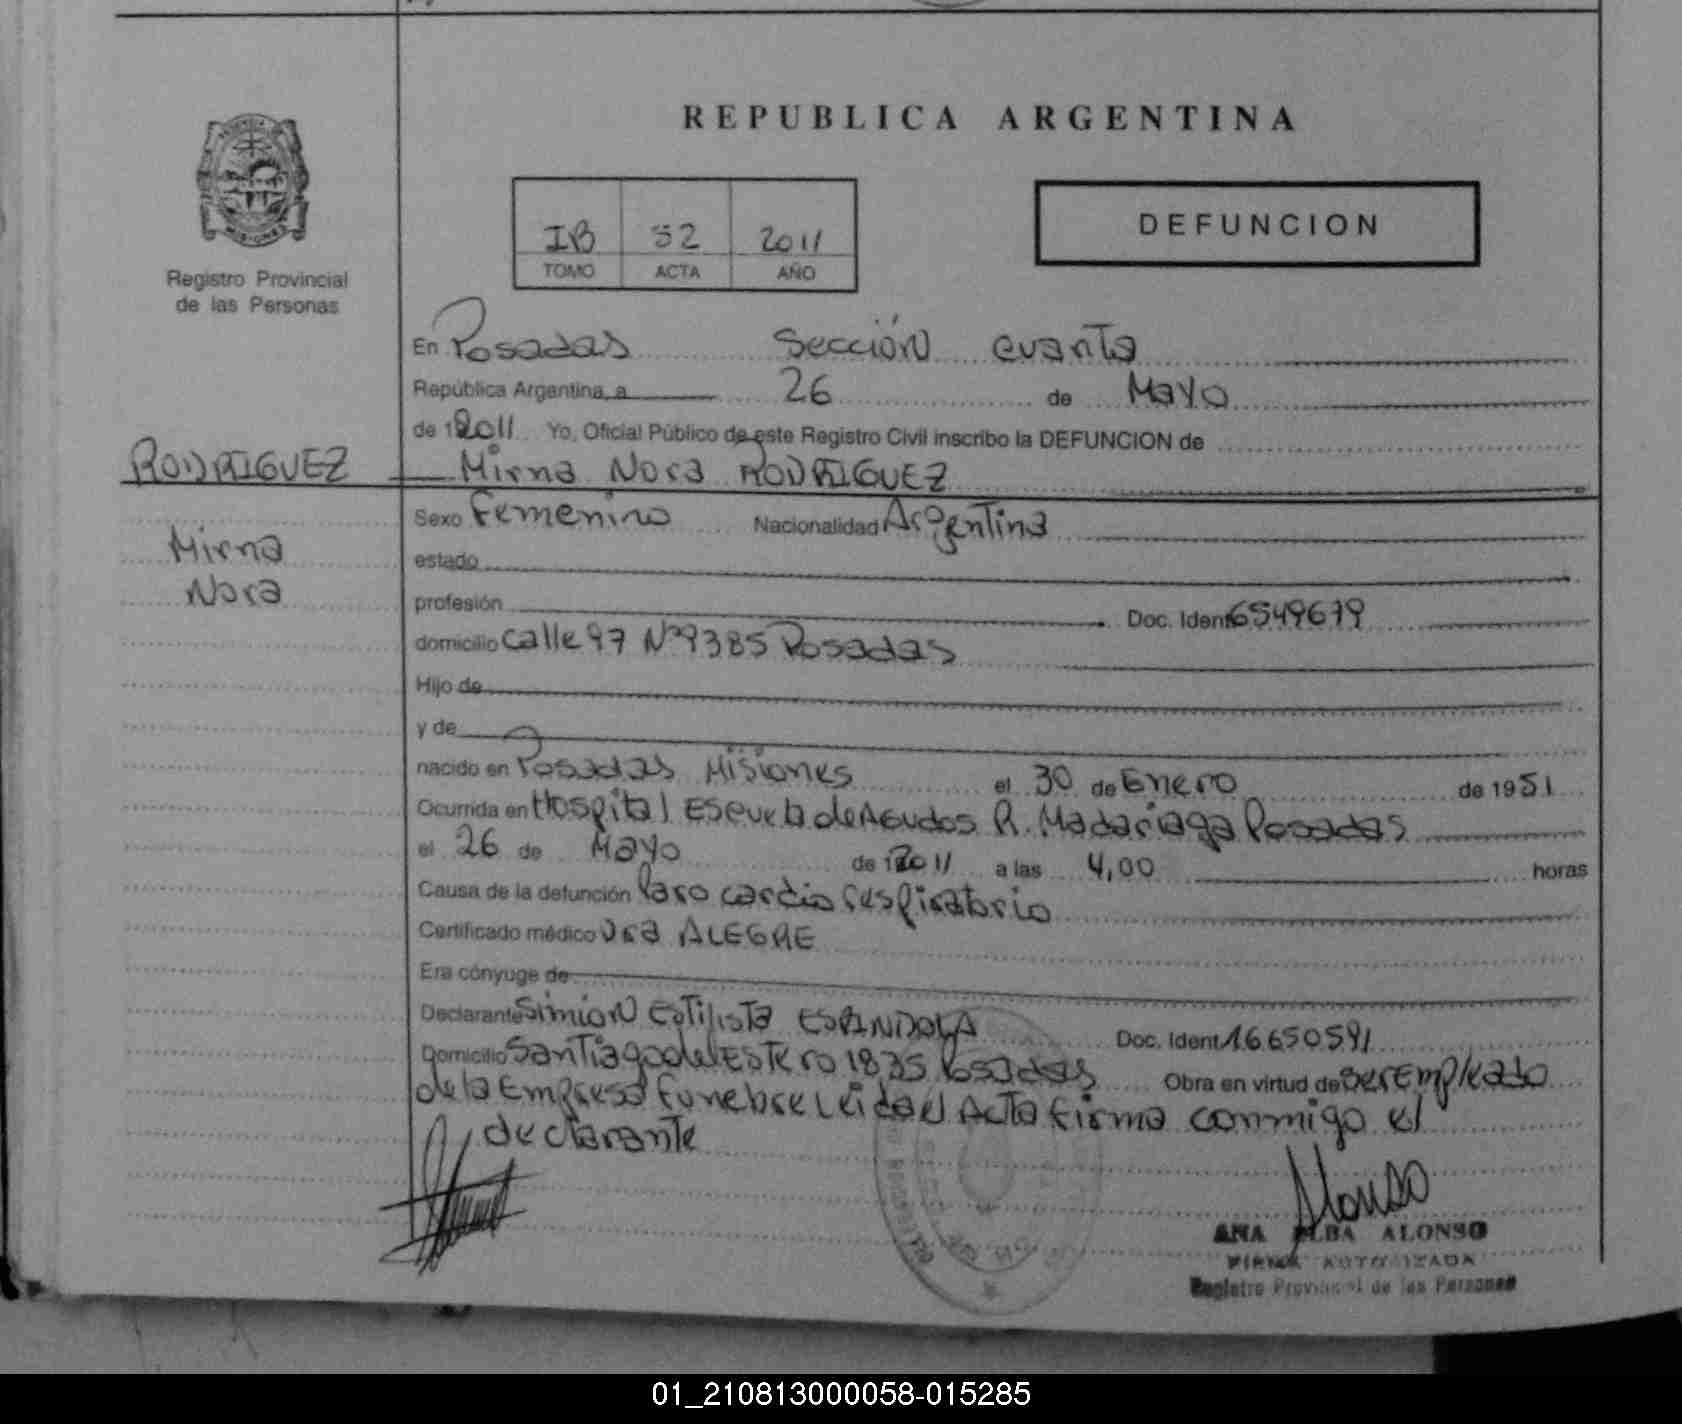 REPUBLICA ARGENTINA
Registro Provincial
de las Personas
IB 52 2011
TOMO ACTA AÑO
DEFUNCION
En Posadas Sección cuarta
República Argentina, a 26 de Mayo
de 2011 Yo, Oficial Público de este Registro Civil inscribo la DEFUNCION de
RODRIGUEZ
Mirna Nora RODRIGUEZ
Mirna
Nora
Sexo Femenino Nacionalidad Argentina
estado
profesión Doc. Ident. 6549679
domicilio calle 97 Nº 9385 Posadas
Hijo de
y de
nacido en Posadas Misiones el 30 de Enero de 1951
Ocurrida en Hospital Escuela de Agudos R. Madariaga Posadas
el 26 de Mayo de 2011 a las 4,00 horas
Causa de la defunción Paro cardio respiratorio
Certificado médico Dra ALEGRE
Era cónyuge de
Declarante Simión ESPINDOLA Doc. Ident. 16650591
Domicilio Santiago del Estero 1835 Posadas Obra en virtud de ser Empleado
de la Empresa Funebre Leida el Acta firma conmigo el
declarante
Alonso
ANA ELBA ALONSO
FIRMA AUTORIZADA
Registro Provincial de las Personas
01_210813000058-015285